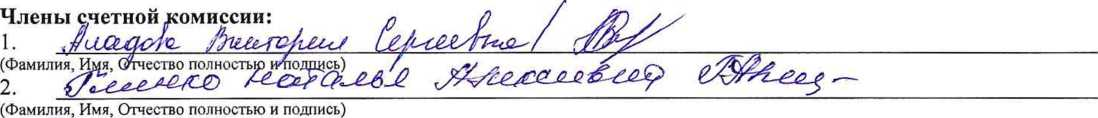 Члены счетной комиссии:
1. Аладова Виктория Сергеевна /
(Фамилия, Имя, Отчество полностью и подпись)
2. Наталья Алексеевна
(Фамилия, Имя, Отчество полностью и подпись)